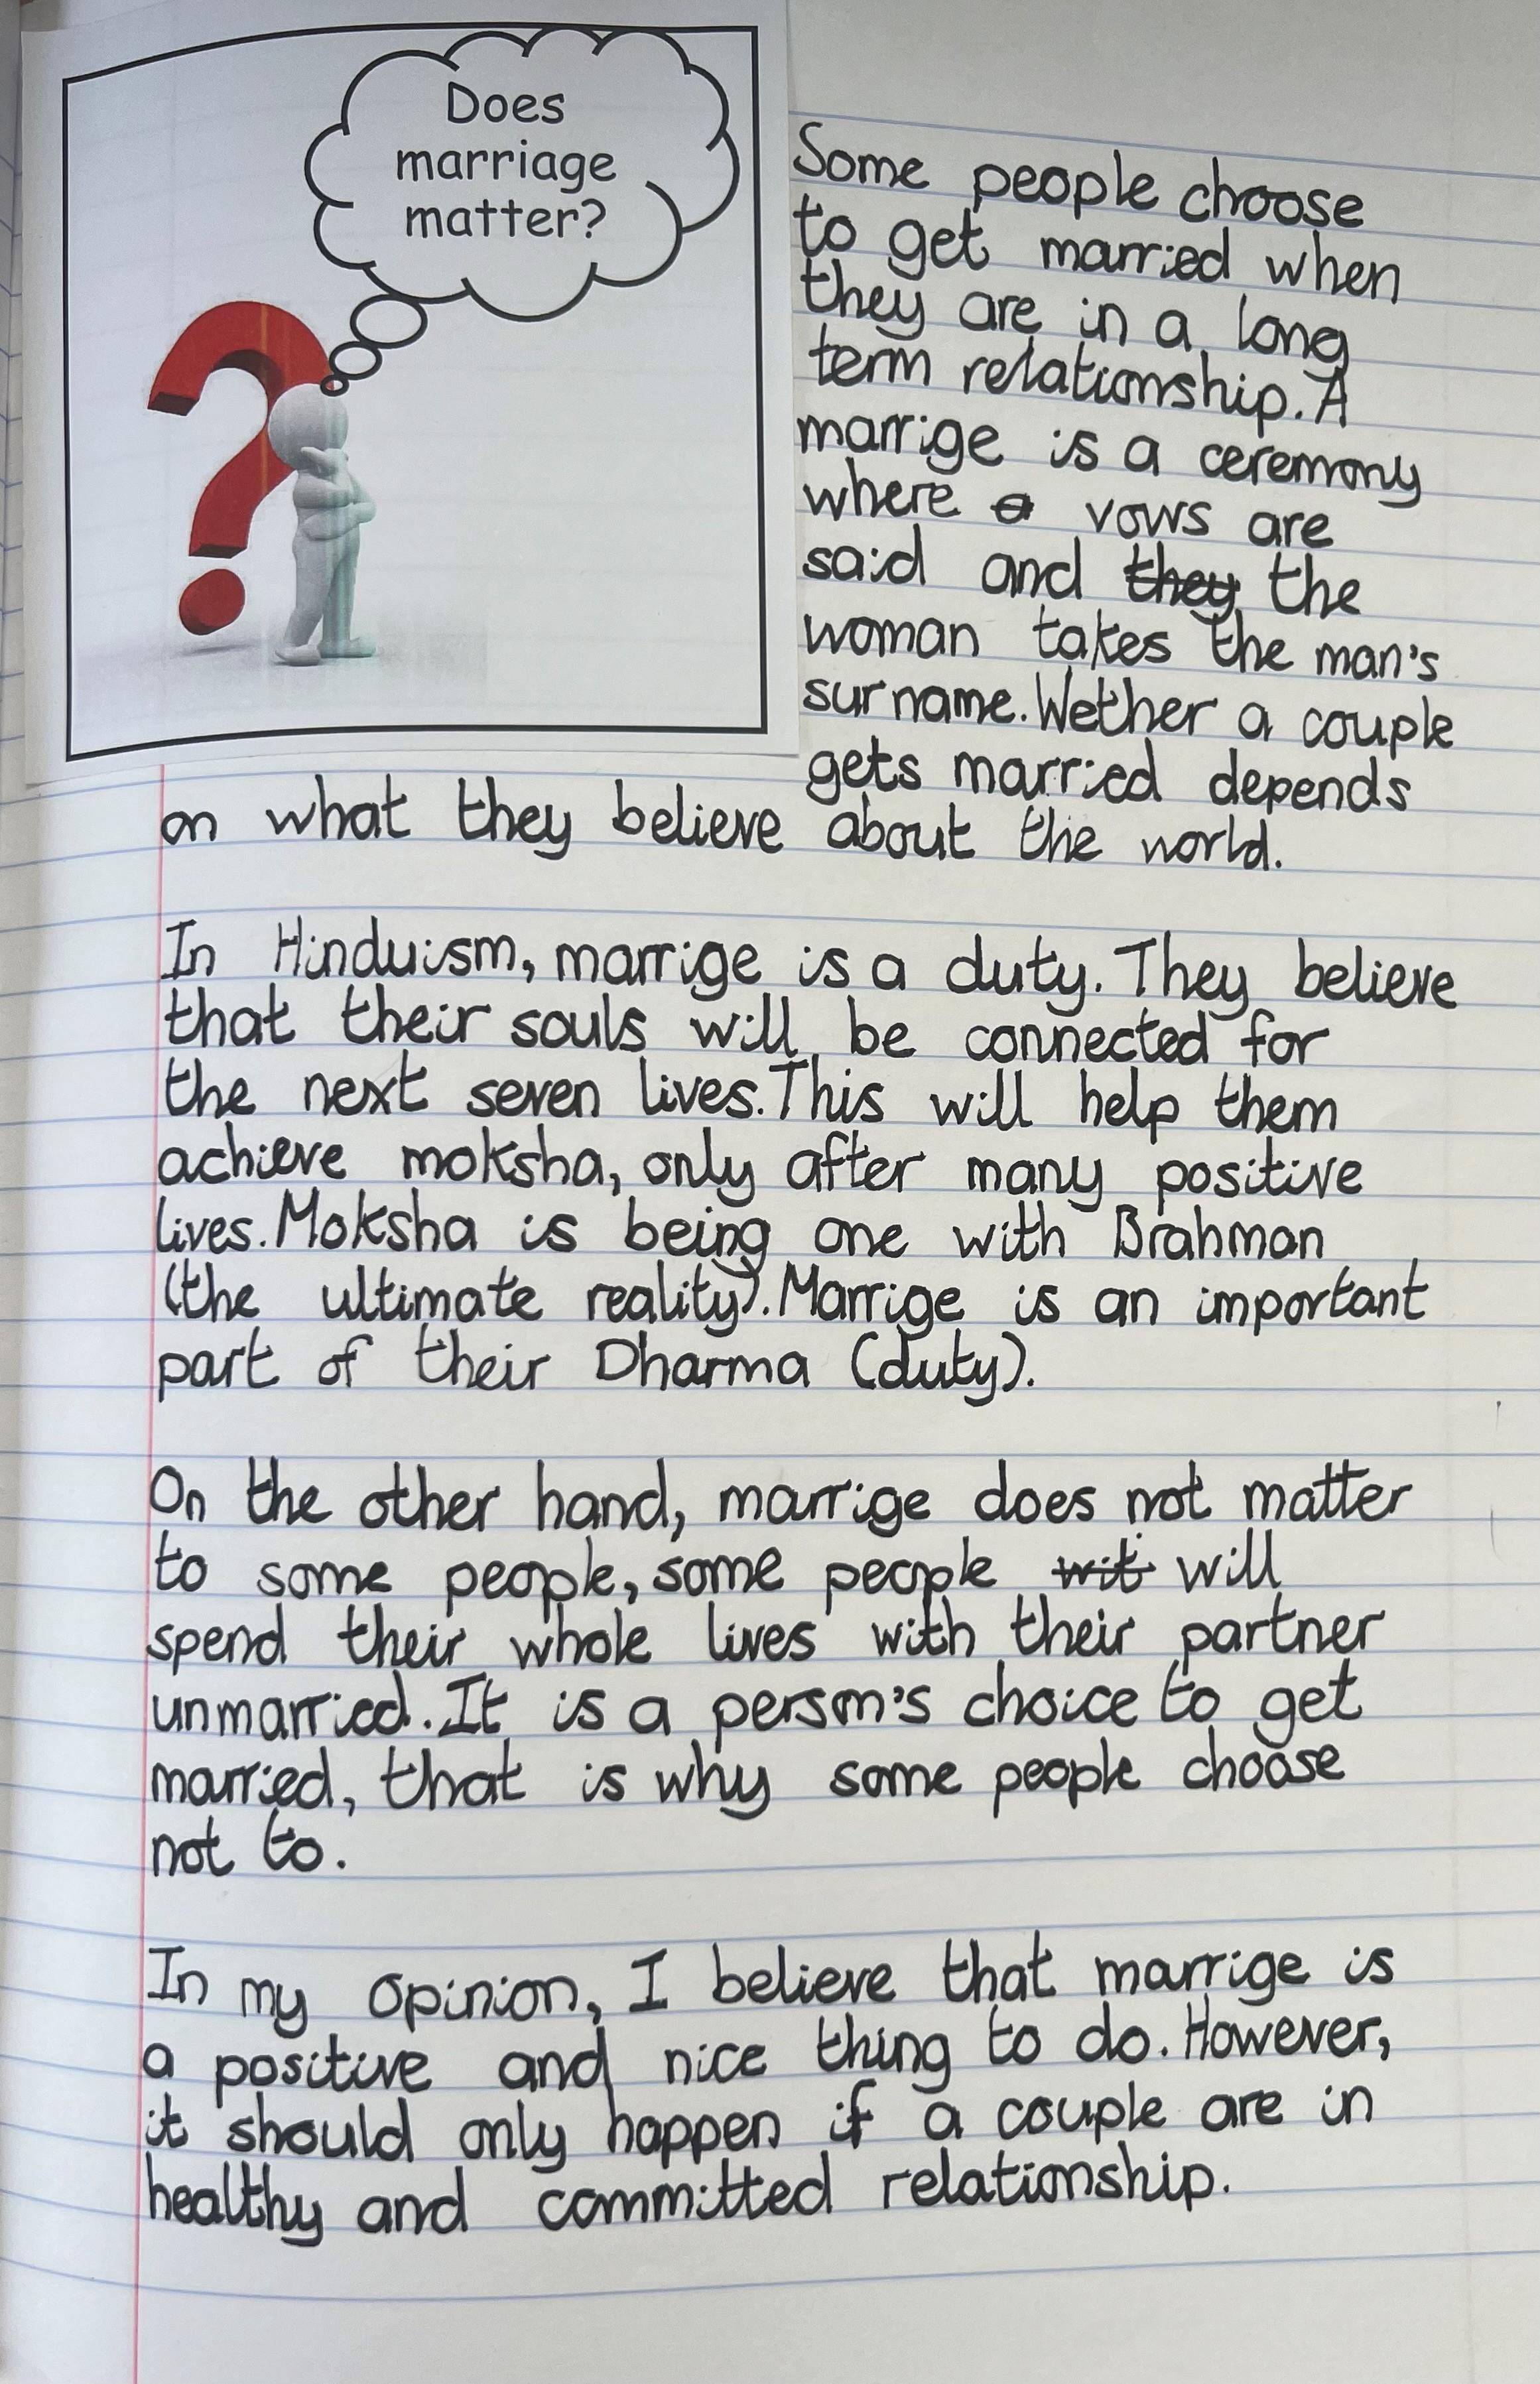 Does
marriage
matter?
Some people choose
to get married when
they are in a long
term relationship. A
marrige is a ceremony
where a vows are
said and they the
woman takes the man's
surname. Wether a couple
gets married depends
on what they believe about the world.
In Hinduism, marrige is a duty. They believe
that their souls will be connected for
the next seven lives. This will help them
achieve moksha, only after many positive
lives. Moksha is being one with Brahman
(the ultimate reality). Marrige is an important
part of their Dharma (duty).
On the other hand, marrige does not matter
to some people, some people wit will
spend their whole lives with their partner
unmarried. It is a person's choice to get
married, that is why some people choose
not to.
In my opinion, I believe that marrige is
a positive and nice thing to do. However,
it should only happen if a couple are in
healthy and committed relationship.